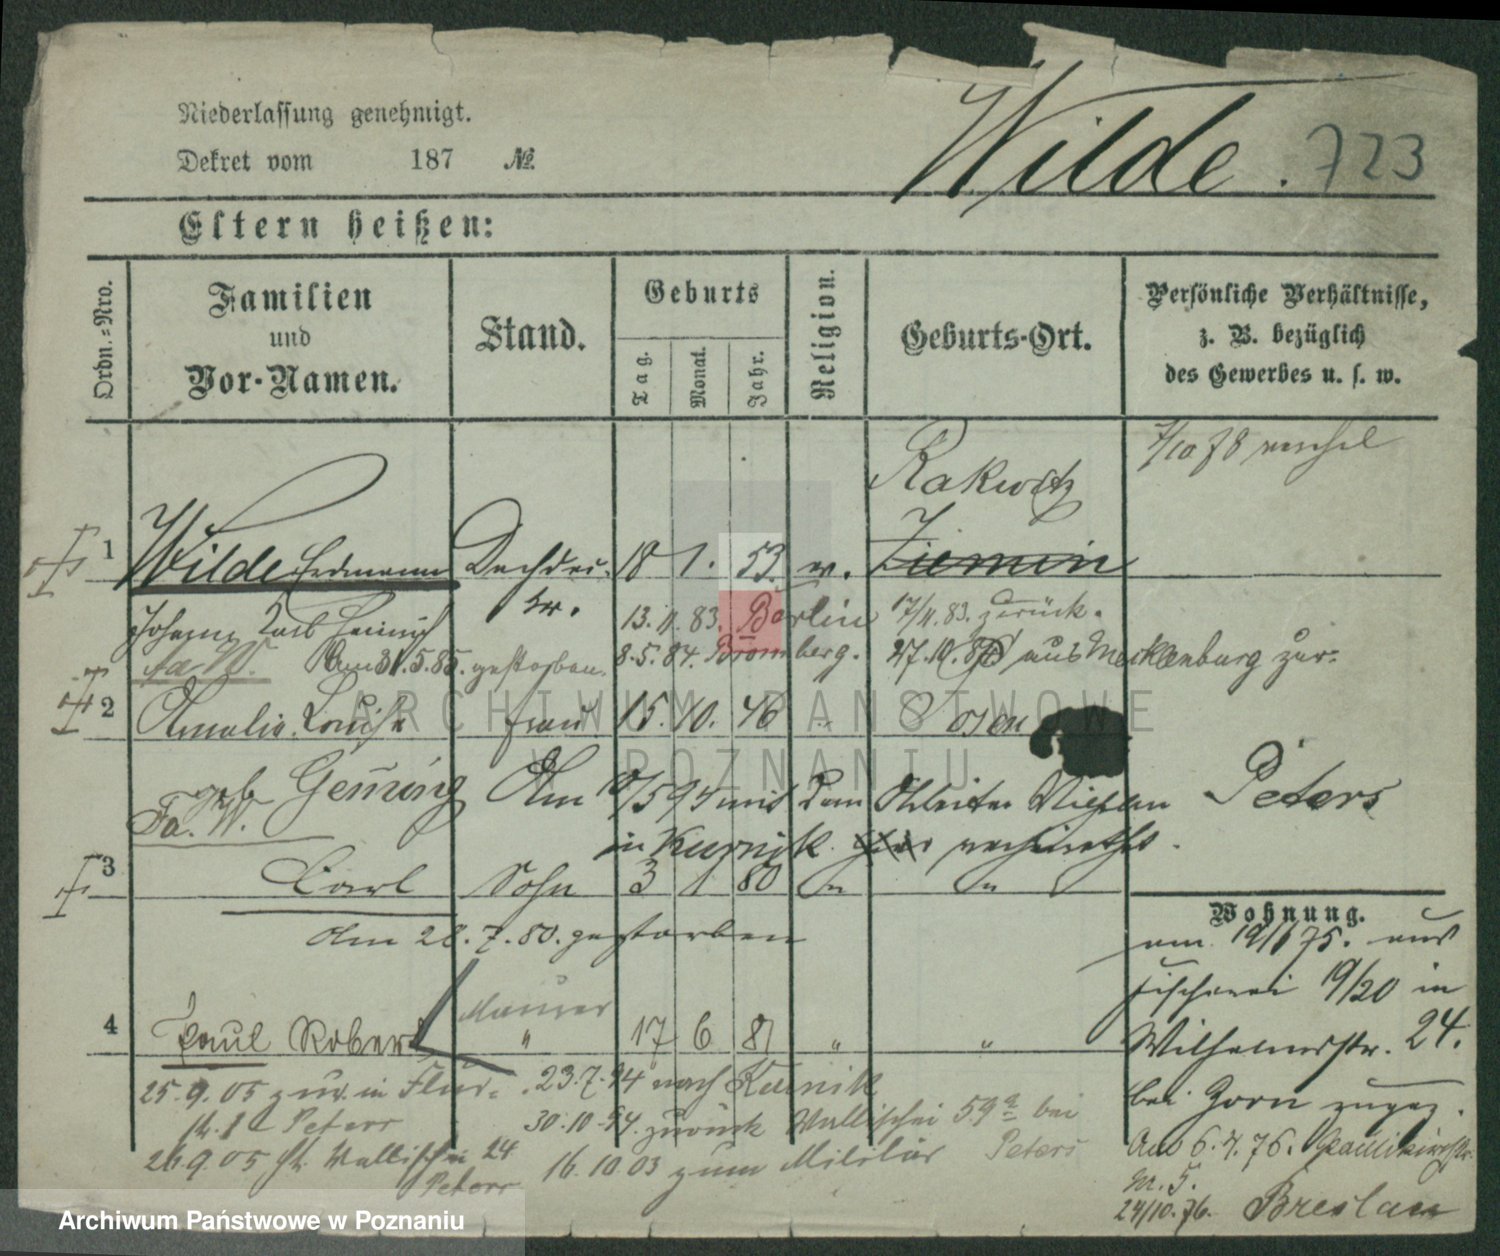 Niederlassung genehmigt.
Dekret vom 187 №
Wilde. 723
Eltern heißen:
Ordn.-Nro.
Familien
und
Vor-Namen.
Stand.
Geburts
Tag.
Monat.
Jahr.
Religion.
Geburts-Ort.
Persönliche Verhältnisse,
z. B. bezüglich
des Gewerbes u. s. w.
7/10 78
Rakwitz
1 Wilde Erdmann Dachdec- 18 1. 53. ev. Ziemin
ker.
Johann Karl Heinrich 13. 11. 83. Berlin 17/11. 83. zurück.
Am 31.5.85. gestorben. 8.5.84. Bromberg. aus Mecklenburg zur.
2 Amalie Louise Frau 15. 10. 46 " Posen
geb. Am 10/5 94 mit dem
Fa. W.
Peters
in Kurnik
3 Carl Sohn 3 1 80 " "
Am 28. 7. 80. gestorben
Wohnung.
am 19/6 75. aus
Fischerei 19/20 in
Wilhelmsstr. 24.
bei Zorn zugez.
Maurer
4 Paul Robert " 17 6 81 " "
25. 9. 05 zur. in . 23. 7. 94 nach Kurnik
Peters 30. 10. 94. zurück Wallischei 59a bei
Peters
26. 9. 05 Wallischei 24
Peters
16. 10. 03 zum Militär
Am 6. 4. 76. Paulikirchstr.
Nr. 5.
24/10. 76. Breslau
ARCHIWUM PAŃSTWOWE
W POZNANIU
Archiwum Państwowe w Poznaniu